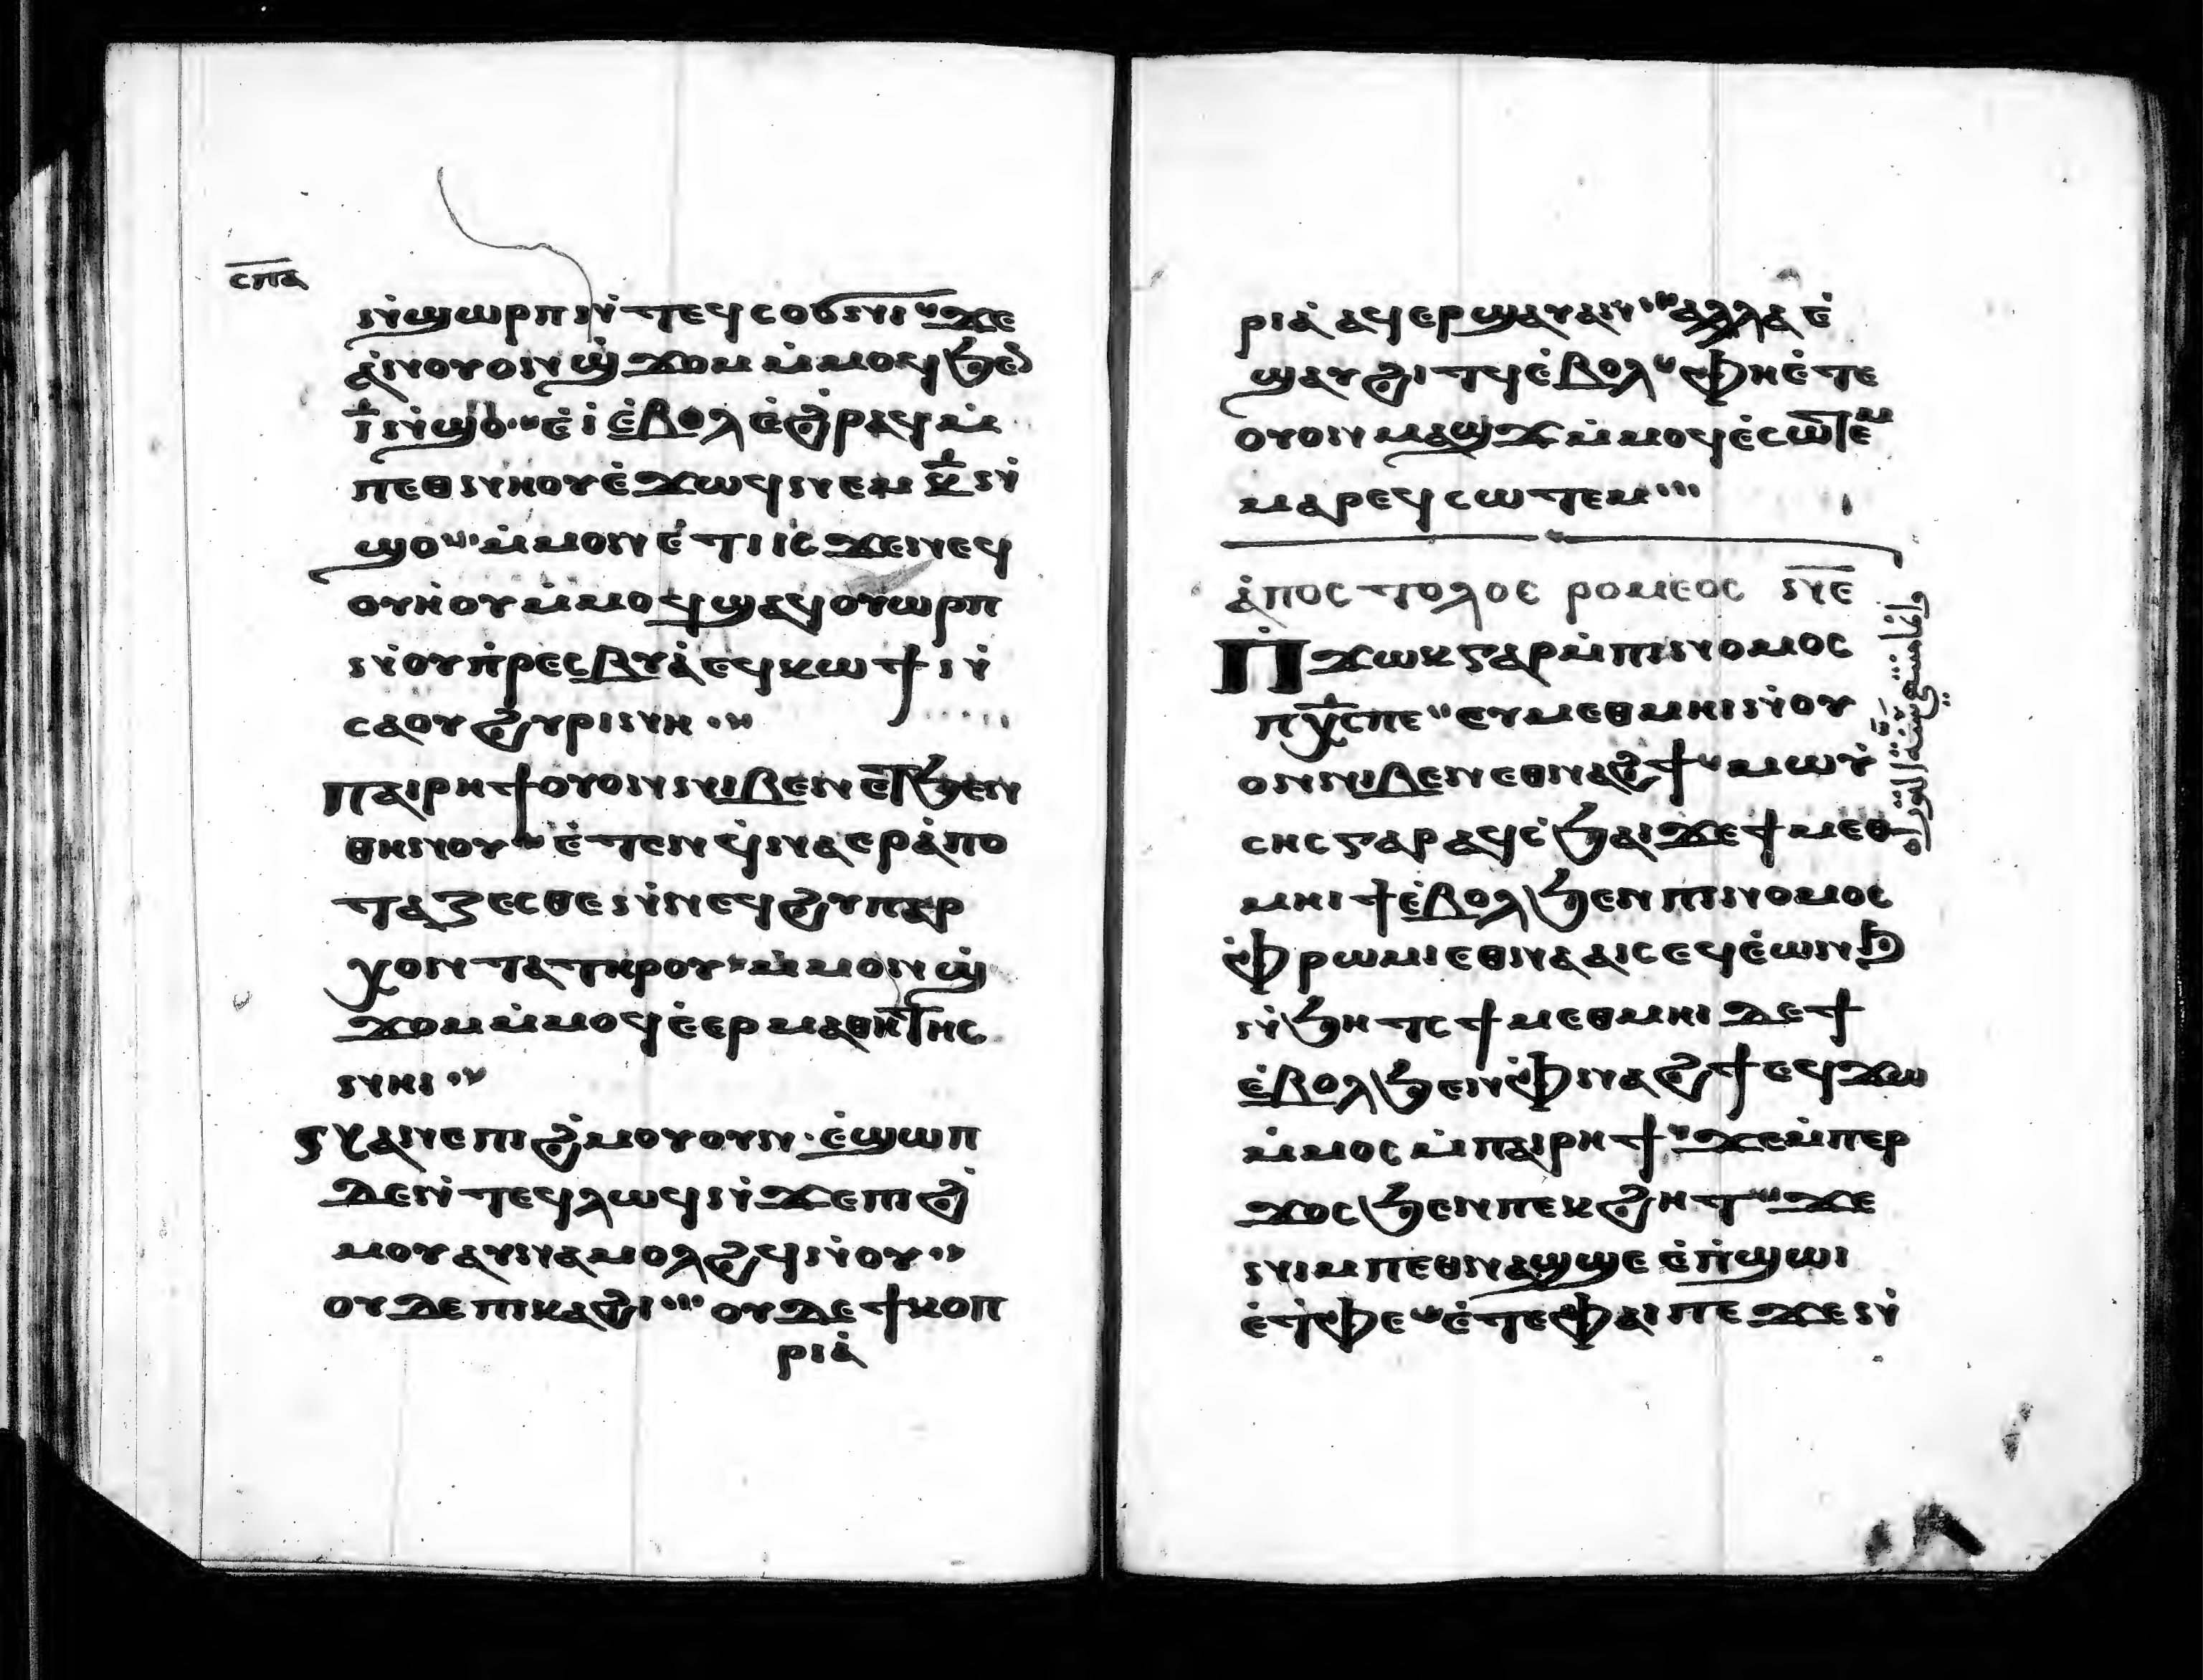 ⲥⲡⲁ
ⲛ̇ϣⲱⲣⲡ ⲛ̇ⲧⲉϥⲥⲟϭⲛⲓ ϫⲉ
ⲁ̇ⲛⲟⲩⲟⲛϣϫⲟⲙ ⲙ̇ⲙⲟϥ ϧⲉⲛ
ⲓ̅ ⲛ̇ϣⲟ ⲉ̇ⲓ̇ ⲉ̇ⲃⲟⲗ ⲉ̇ϩ̇ⲣⲁϥ ⲙ̇
ⲡⲉⲑⲛⲏⲟⲩ ⲉ̇ϫⲱϥ ⲛⲉⲙ ⲕ̅ ⲛ̇
ϣⲟ ⲙ̇ⲙⲟⲛ ⲉ̇ⲧⲓ ⲓⲥ ϫⲉⲛⲉϥ
ⲟⲩⲏⲟⲩ ⲙ̇ⲙⲟϥ ϣⲁϥⲟⲩⲱⲣⲡ
ⲛ̇ⲟⲩⲡ̇ⲣⲉⲥⲃⲩⲁ̇ ⲉϥⲕⲱϯ ⲛ̇
ⲥⲁⲟⲩϩⲩⲣⲓⲛⲏ
ⲡⲁⲓⲣⲏϯ ⲟⲩⲟⲛ ⲛⲓⲃⲉⲛ ⲉⲧϧⲉⲛ
ⲑⲏⲛⲟⲩ ⲉ̇ⲧⲉⲛϥ̇ⲛⲁⲉⲣⲁ̇ⲡⲟ
ⲧⲁⲝⲉⲥⲑⲉ ⲛ̇ⲛⲉϥϩⲩⲡⲁⲣ
ⲭⲟⲛⲧⲁ ⲧⲏⲣⲟⲩ ⲙ̇ⲙⲟⲛϣ
ϫⲟⲙ ⲙ̇ⲙⲟϥ ⲉ̇ⲉⲣⲙⲁⲑⲏⲧⲏⲥ
ⲛⲏⲓ
ⲛⲁⲛⲉⲡⲓϩ̇ⲙⲟⲩ ⲟⲩⲛ ⲉ̇ϣⲱⲡ
ⲇⲉ ⲛ̇ⲧⲉϥⲗⲱϥ ⲛ̇ϫⲉⲡⲓϩ̇
ⲙⲟⲩ ⲁⲩⲛⲁⲙⲟⲗϩϥ ⲛ̇ⲟⲩ
ⲟⲩⲇⲉ ⲡⲓⲕⲁϩⲓ ⲟⲩⲇⲉ ϯⲕⲟⲡ
ⲣⲓⲁ̇
ⲣⲓⲁ̇ ⲁϥⲉⲣϣⲁⲩ ⲁⲛ ⲁⲗⲗⲁ ⲉ̇
ϣⲁⲩϩⲓⲧϥ ⲉ̇ⲃⲟⲗ ⲫⲏⲉ̇ⲧⲉ
ⲟⲩⲟⲛⲙⲁϣϫ ⲙ̇ⲙⲟϥ ⲉ̇ⲥⲱⲧⲉⲙ
ⲙⲁⲣⲉϥⲥⲱⲧⲉⲙ
ⲁ̇ⲡⲟⲥⲧⲟⲗⲟⲥ ⲣⲟⲙⲉⲟⲥ ⲛⲉ
ⲡ̇ϫⲱⲕ ⲅⲁⲣ ⲙ̇ⲡⲓⲛⲟⲙⲟⲥ
ⲡⲭ̅ⲥ ⲡⲉ ⲉⲩⲙⲉⲑⲙⲏⲓ ⲛ̇ⲟⲩ
ⲟⲛ ⲛⲓⲃⲉⲛ ⲉⲑⲛⲁϩϯ ⲙⲱⲩ̇
ⲥⲏⲥ ⲅⲁⲣ ⲁϥⲥ̇ϧⲁⲓ ϫⲉ ϯⲙⲉⲑ
ⲙⲏⲓ ϯⲉ̇ⲃⲟⲗ ϧⲉⲛ ⲡⲓⲛⲟⲙⲟⲥ
ⲫ̇ⲣⲱⲙⲓ ⲉⲑⲛⲁⲁⲓⲥ ⲉϥⲉ̇ⲱⲛϧ
ⲛ̇ϧⲏⲧⲥ ϯⲙⲉⲑⲙⲏⲓ ⲇⲉ ϯ
ⲉ̇ⲃⲟⲗ ϧⲉⲛⲫ̇ⲛⲁϩϯ ⲉϥϫⲱ
ⲙ̇ⲙⲟⲥ ⲙ̇ⲡⲁⲓⲣⲏϯ ϫⲉⲙ̇ⲡⲉⲣ
ϫⲟⲥ ϧⲉⲛ ⲡⲉⲕϩⲏⲧ ϫⲉ
ⲛⲓⲙ ⲡⲉⲑⲛⲁϣϣⲉ ⲉ̇ⲡ̇ϣⲱⲓ
ⲉ̇ⲧ̇ⲫⲉ ⲉ̇ⲧⲉ ⲫⲁⲓ ⲡⲉ ϫⲉ ⲛ̇